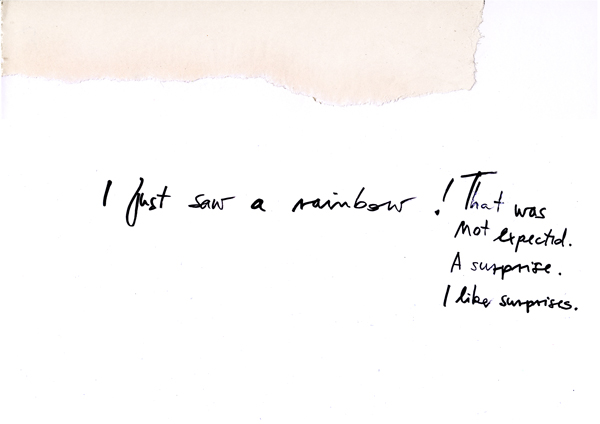 I just saw a rainbow! That was
not expected.
A surprise.
I like surprises.